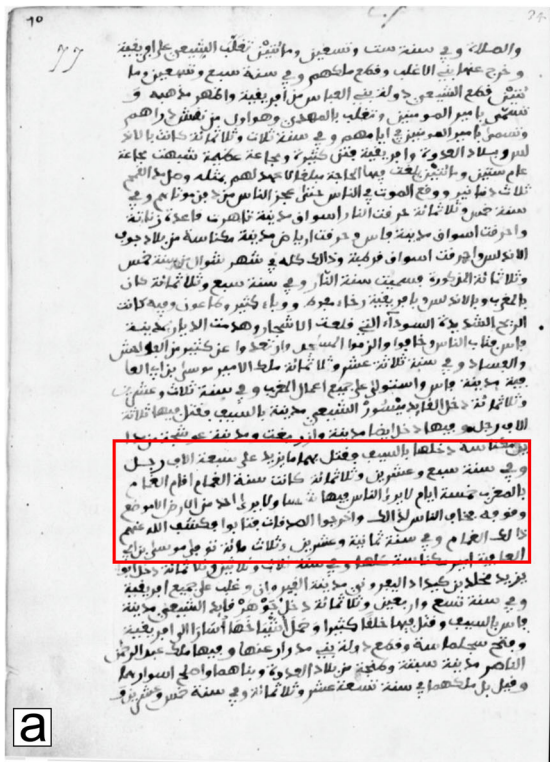 70 24
77
والصلاة وفي سنة ست وتسعين ومائتين تغلب الشيعي على افريقية
وخرج عنها بني الاغلب وقطع ملكهم وفي سنة سبع وتسعين وما
ئتين قطع الشيعي دولة بني العباس من افريقية واظهر مذهبه و
تسمى بامير المومنين وتغلب بالمهدي وهو اول من نقش دراهم
وتسمى بامير المومنين في ايامهم وفي سنة ثلاث وثلاثمائة كانت بالاند
لس وبلاد العدوة وافريقية فتن كثيرة ومجاعة عظيمة شبهت بمجاعة
عام ستين ومائتين بلغت فيها الحاجة مبلغا لا عهد لهم بمثله وصل مد القمح
ثلاث دنانير ووقع الموت في الناس حتى عجز الناس من دفن موتاهم وفي
سنة خمس وثلاثمائة حرقت النار اسواق مدينة تاهرت قاعدة زناتة
واحرقت اسواق مدينة فاس وحرقت ارباض مدينة مكناسة من بلاد جوف
الاندلس واحرقت اسواق قرطبة وذالك كله في شهر شوال من سنة خمس
وثلاثمائة المذكورة فسميت سنة النار وفي سنة سبع وثلاثمائة كان
بالمغرب وبالاندلس وبافريقية رخاء مفرط ووباء كثير وطاعون وفيه كانت
الريح الشديدة السوداء التي قلعت الاشجار وهدمت الديار بمدينة
فاس فتاب الناس وخافوا والزموا المسجد وارتعدوا عن كثير من الفواحش
والفساد وفي سنة ثلاثة عشر وثلاثمائة ملك الامير موسى بن ابي العا
فية مدينة فاس واستولى على جميع اعمال المغرب وفي سنة ثلاث وعشرين
وثلاثمائة دخل القايد ميسور الشيعي مدينة بالسيف فقتل فيها ثلاثة
الاف رجل وفيها دخل ايضا مدينة وازريغت ومدينة
مكناسة دخلها بالسيف وقتل بهما ما يزيد على سبعة الاف رجل
وفي سنة سبع وعشرين وثلاثمائة كانت سنة الغمام اقام الغمام
بالمغرب خمسة ايام لا يرى الناس فيها شمسا ولا يرى احد من الارض الا موضع
وقوفه فخاف الناس لذالك واخرجوا الصدقات وتابوا فكشف الله عنهم
ذالك الغمام وفي سنة ثمانية وعشرين وثلاث مائة توفي موسى بن ابي
العافية امير مكناسة كلها وفي سنة ثلاث وثلاثين وثلاثمائة دخل ابو
يزيد مخلد بن كيداد اليفروني مدينة القيروان وغلب على جميع افريقية
وفي سنة تسع واربعين وثلاثمائة دخل جوهر قايد الشيعي مدينة
فاس بالسيف وقتل فيها خلقا كثيرا وحمل اشياخها اسارا الى افريقية
وفتح سجلماسة وقطع دولة بني مدرار عنها وفيها ملك عبد الرحمن
الناصر مدينة سبتة وطنجة من بلاد العدوة وبناهما واصلح اسوارهما
وقيل بل ملكهما في سنة تسعة عشر وثلاثمائة وفي سنة خمس وعشرين و
a